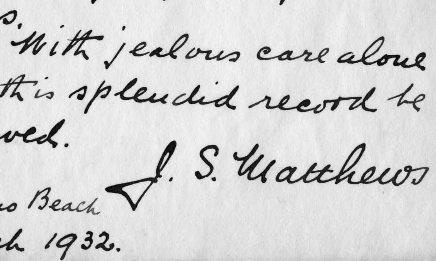 s.
With jealous care alone
this splendid record be
ved.
J. S. Matthews
Beach
ch 1932.